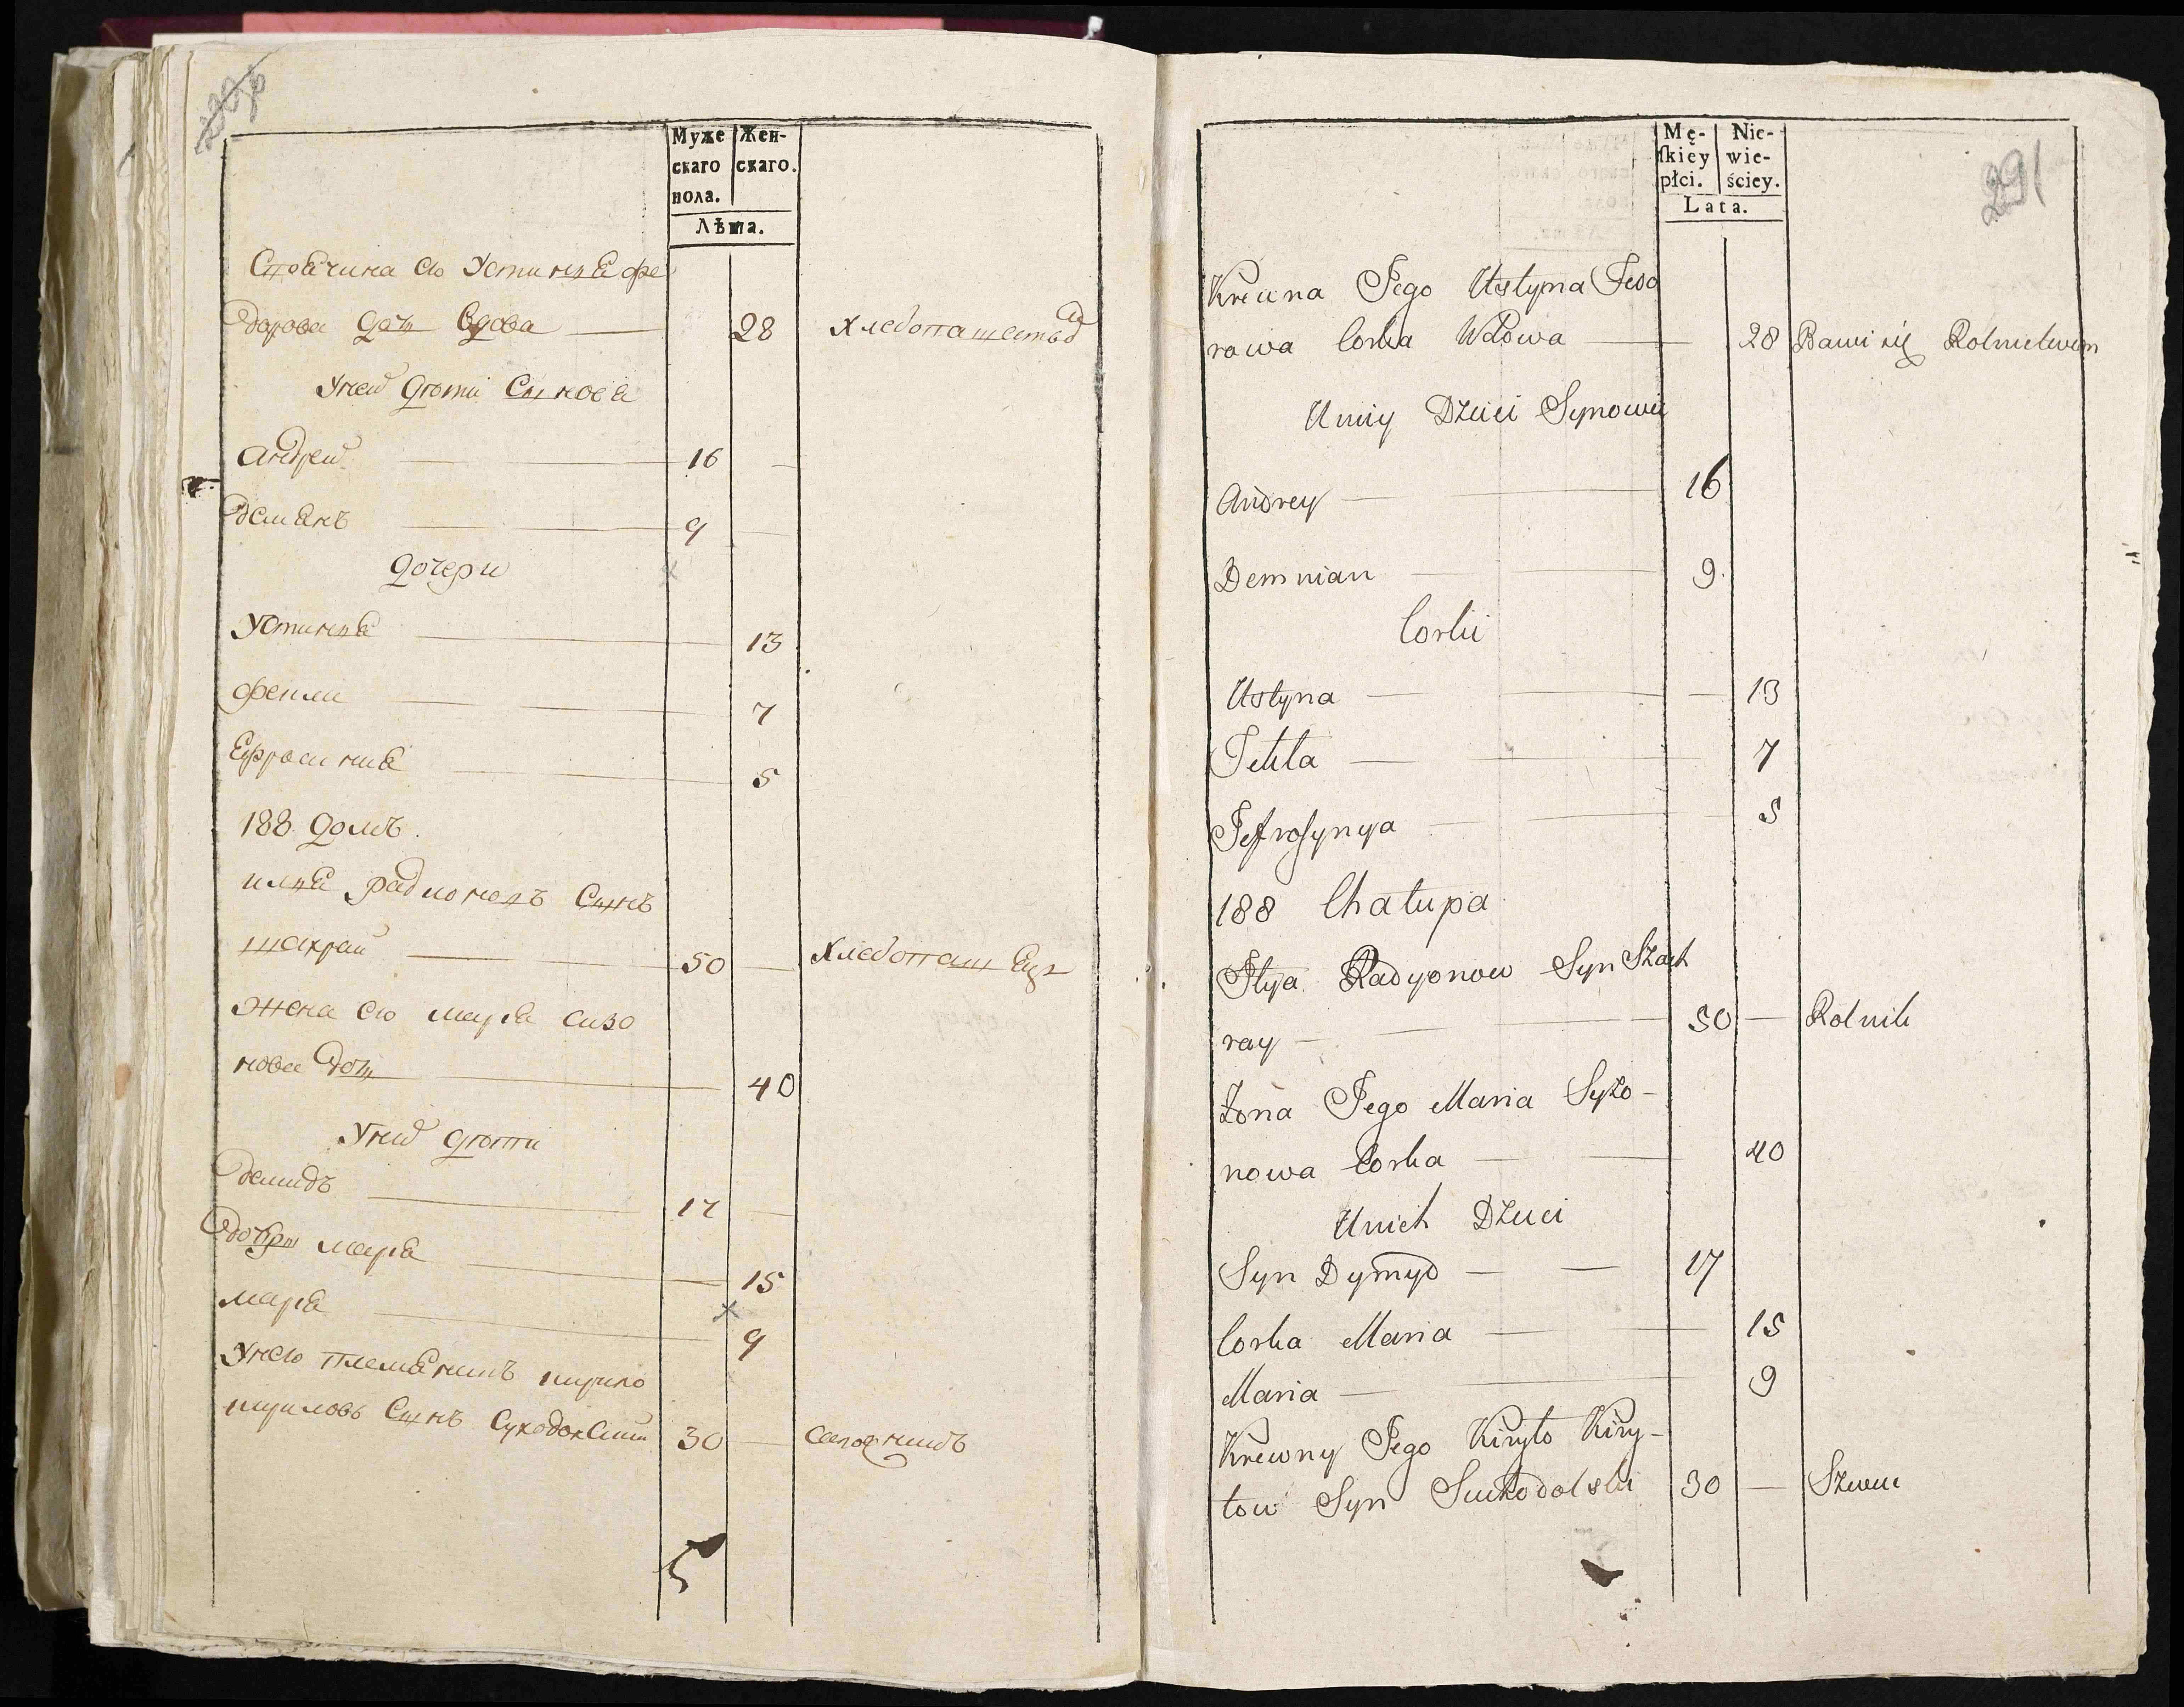 Муже
скаго
пола.
Жен-
скаго.
Лѣта.
его Устинья Фе
дорова дочь вдова 28
У ней дѣти Сыновья
Андрей 16
Демьянъ 9
Дочери
Устинья 13
Фекла 7
Ефросинья 5
188 домъ.
Илья Радионовъ Сынъ
Шахрай 50 Хлебопашецъ
Жена его Марья Сизо
нова дочь 40
У нихъ дѣти
Демидъ 17
дочерь Марья 15
Марья 9
У него племянникъ Кирило
Кириловъ Сынъ Суходолский 30 Сапожникъ
291
Mę-
skiéy
płci.
Nie-
wie-
ściey.
Lata.
Krewna Jego Ustyna Fedo
rowa Corka Wdowa 28 Bawi się Rolnictwem
U niey Dzieci Synowie
Andrey 16
Demnian 9.
Corki
Ustyna 13
Tekla 7
Jefrosynya 5
188 Chałupa
Ilya Radyonow Syn Szach
ray 50 Rolnik
Żona Jego Maria Syzo-
nowa Corka 40
U nich Dzieci
Syn Dymyd 17
Corka Maria 15
Maria 9
Krewny Jego Kiryło Kiry-
łow Syn Suchodolski 30 Szewc